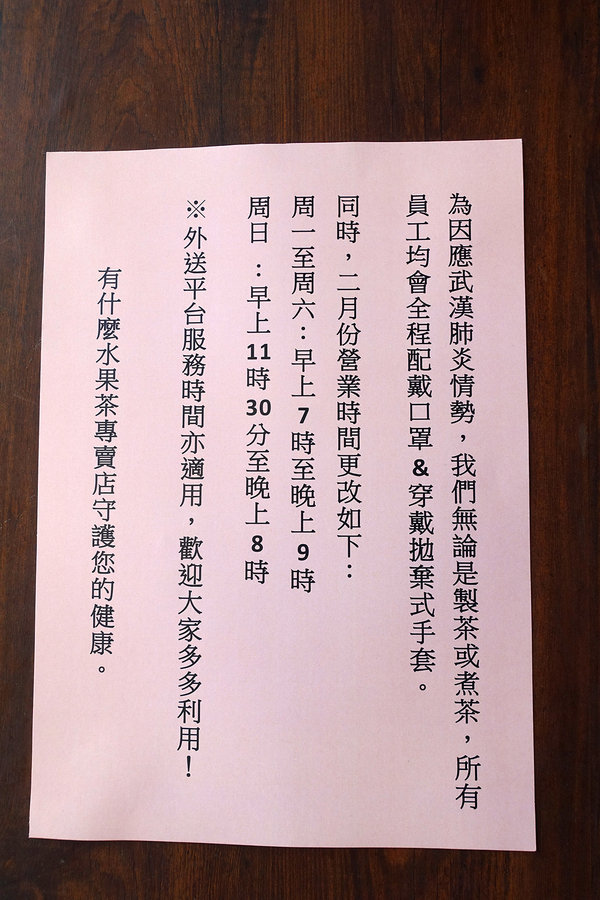 為因應武漢肺炎情勢，我們無論是製茶或煮茶，所有
員工均會全程配戴口罩&穿戴拋棄式手套。
同時，二月份營業時間更改如下：
周一至周六：早上7時至晚上9時
周日：早上11時30分至晚上8時
※外送平台服務時間亦適用，歡迎大家多多利用！
有什麼水果茶專賣店守護您的健康。